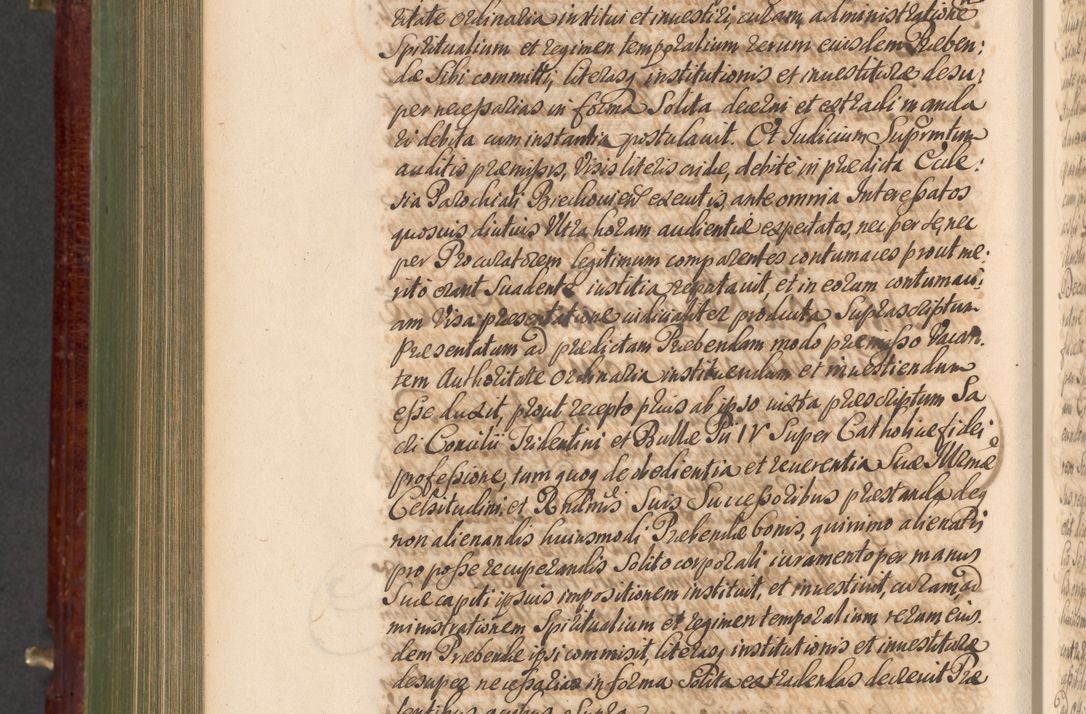 ritate ordinaria institui et investiri, curam, administrationẽ
Spiritualium et regimen temporalium rerum eiusdem Præben:
dæ Sibi committi, literasq institutionis et investituræ desu,
per necessarias in forma Solita decerni et extradi manda
ri debita cum instantia postulavit. Et Judicium Suprmtum
auditis præmissis, Visis literis cridæ, debite in prædicta Ecle:
sia Parochiali Brechovien executis, ante omnia Interessatos
quosvis diutius Ultra horam audientiæ expectatos, nec per se, nec
per Procuratorem legitimum comparentes contumaces prout me:
rito erant Suadente iustitia reputavit, et in eorum contumaci:
am Visa præsentatione iudicialiter producta Suprascriptum
Præsentatum ad prædictam Præbendam modo præmisso Vacan.
tem Authoritate Ordinaria instituendum et investiendum
esse duxit, prout recepto prius ab ipso iuxta præscriptum Sa
cri Concilii Tridentini et Bullæ Pii IV Super Catholicæ fidei
professione, tum quoq de obedientia et reverentia Suæ Illrmæ
Celsitudini, et Rndmis Suis Successoribus præstanda deq
non alienandis huiusmodi Præbendæ bonis, quinimo alienatis
pro posse recuperandis Solito corporali iuramento per manus
Suæ capiti ipsius impositionem instituit, et investivit, curam ad
ministrationem Spiritualium et regimen temporalium rerum eius.
dem Præbendæ ipsi commisit, literasq institutionis et investituræ
desuper necessarias in forma Solita extradendas decrevit Præ
sentibus quibus Supra